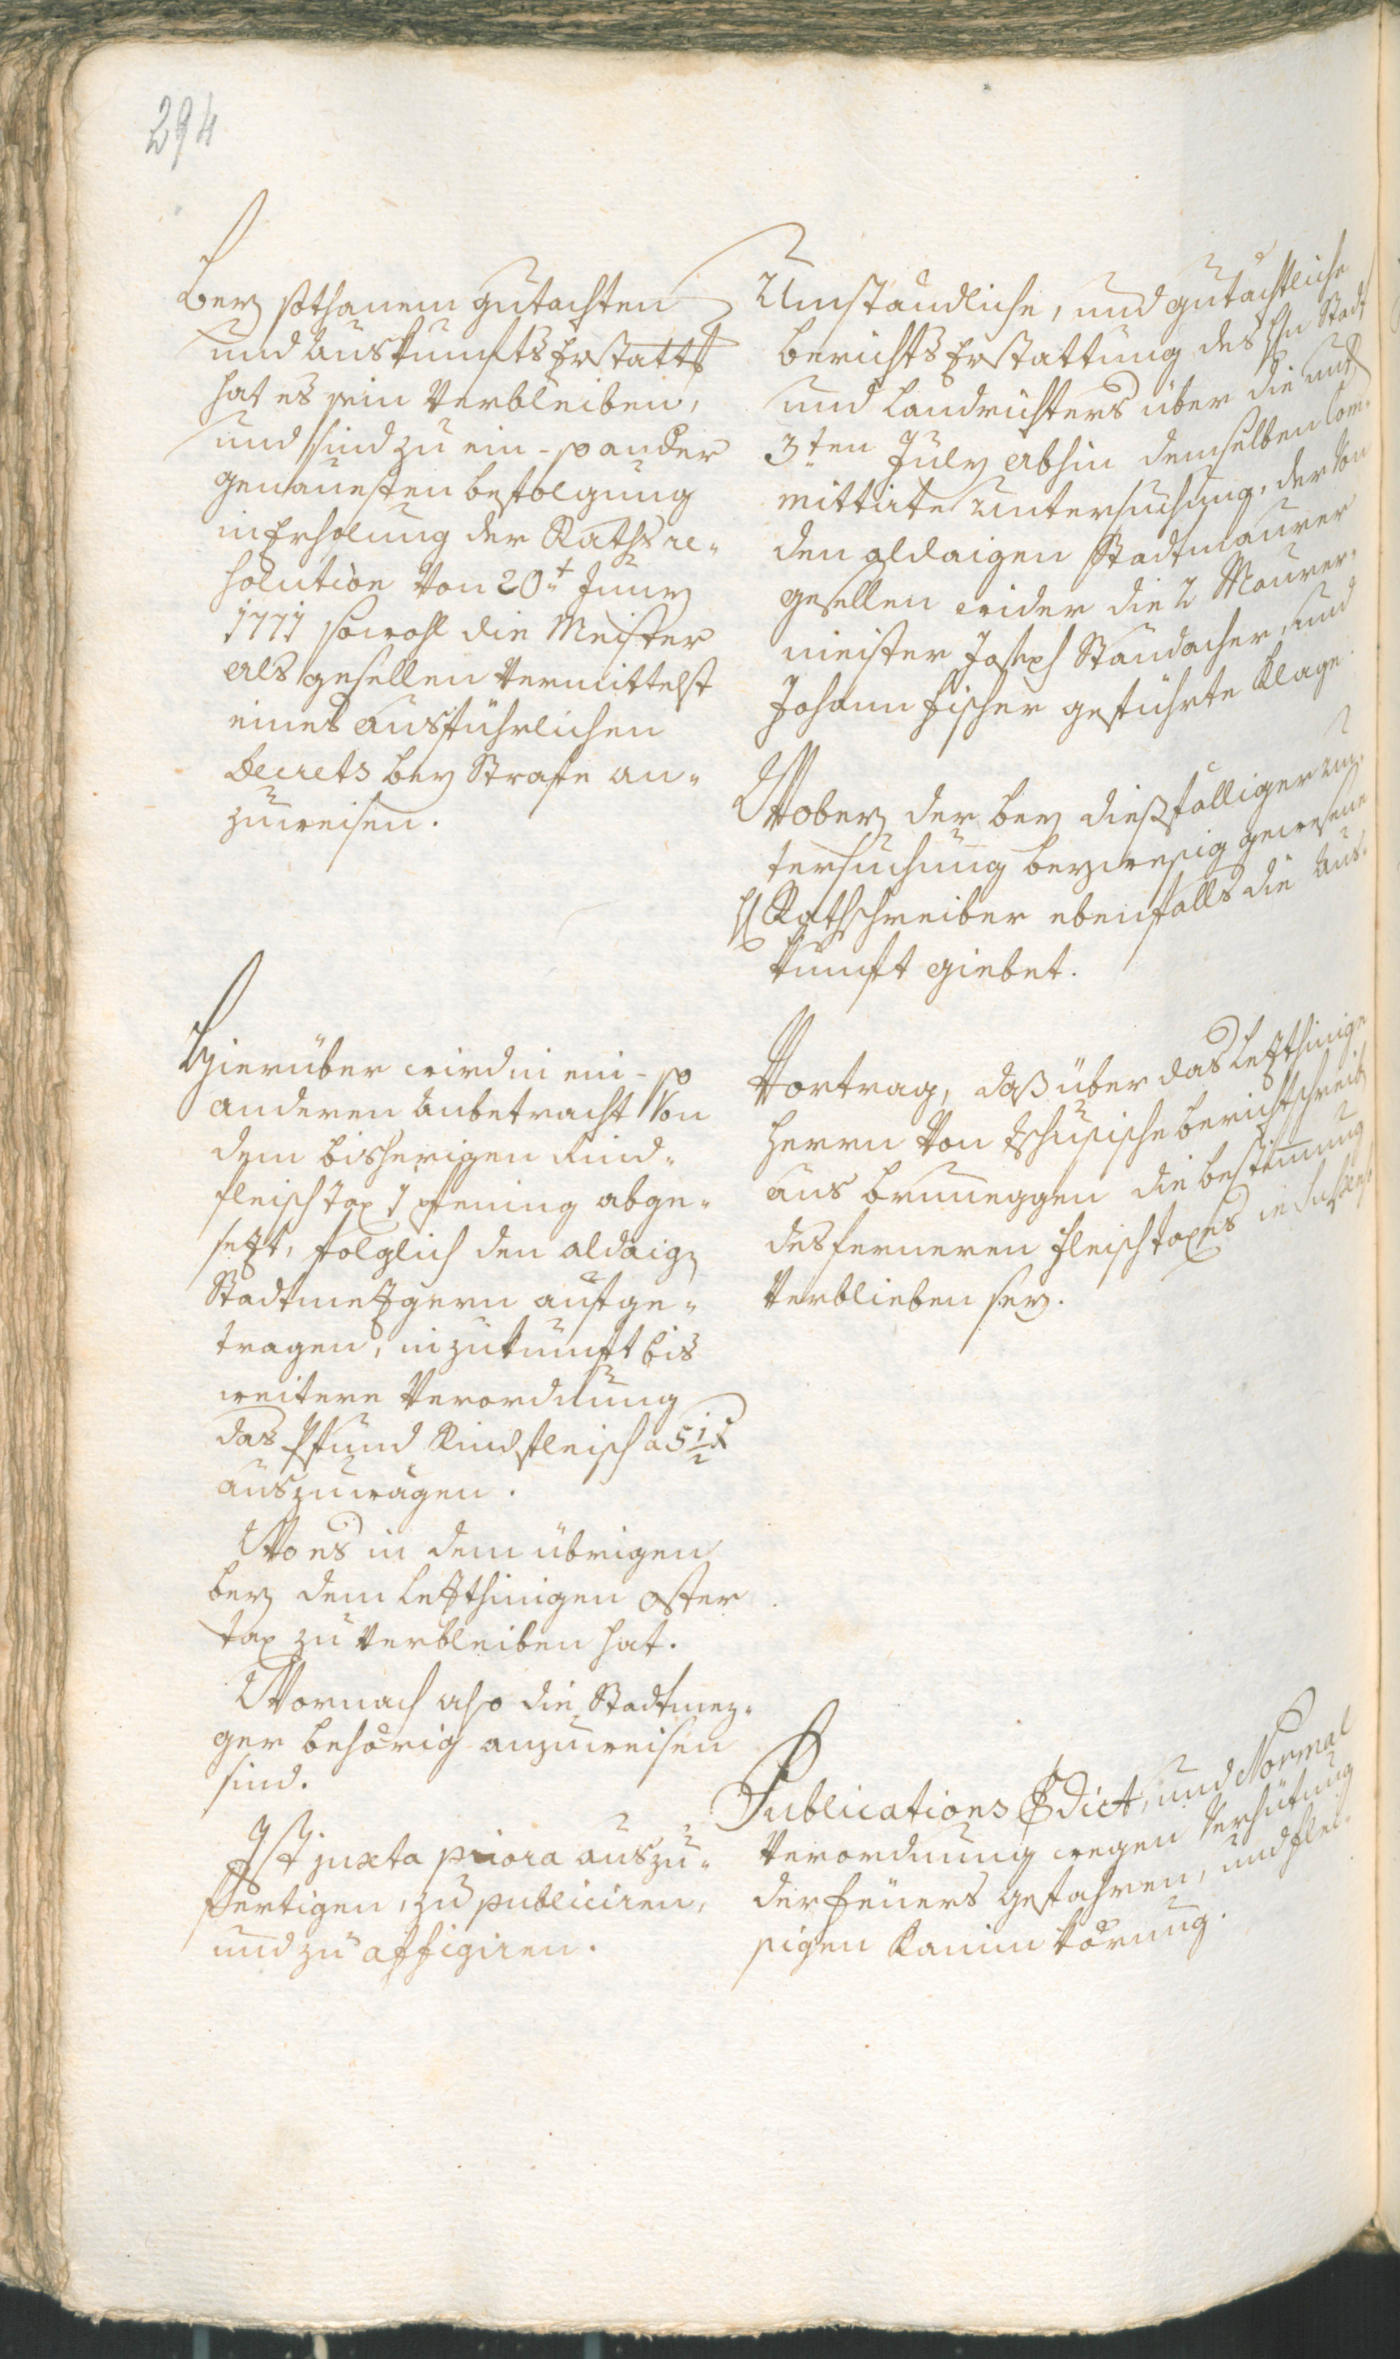 294
Bey sothanem gutachten
und Auskunfts Erstattg
hat es sein Verbleiben,
und sind zu ein- so ander
genauesten befolgung
in Erholung der Raths re-
solution von 20t Juny
1771 sowohl die Meister
als gesellen vermittelst
eines ausführlichen
Decrets bey Strafe an-
zuweisen.
Hierüber wird in ein- so
anderen Anbetracht von
dem bisherigen Rind-
fleisch tax 1 pfening abge-
setzt, folglich den aldaig
Stadtmetzgern aufge-
tragen, in zukunft bis
weitere Verordnung
das Pfund Rindfleisch a 5 1/2 x
auszuwägen.
Wo es in dem übrigen
bey dem letzthinigen oster
tax zu verbleiben hat.
Wornach also die Stadtmez-
ger behörig anzuweisen
sind.
Ist juxta priora auszu-
fertigen, zu publiciren,
und zu affigiren.
Umständliche, und gutachtliche
berichts Erstattung des Hn Stadt
und Landrichters über die unt
3ten July abhin demselben Com-
mittirte Untersuchung, der von
den aldaigen Stadtmaurer
gesellen wider die 2 Maurer-
meister Joseph Staudacher, und
Johann Fischer geführte Klage.
Wobey der bey diesfälliger un-
tersuchung beywesig gewesene
H Rathschreiber ebenfalls die Aus-
kunft giebet.
Vortrag, daß über das letzthinige
Herrn von Tschusische berichtschreib
aus Bruneggen die bestimmung
des ferneren fleischtaxes in
verblieben sey.
Publications Edict, und Normal
Verordnung wegen Verhütung
der feuers gefahren, und flei-
sigen Kamin körung.